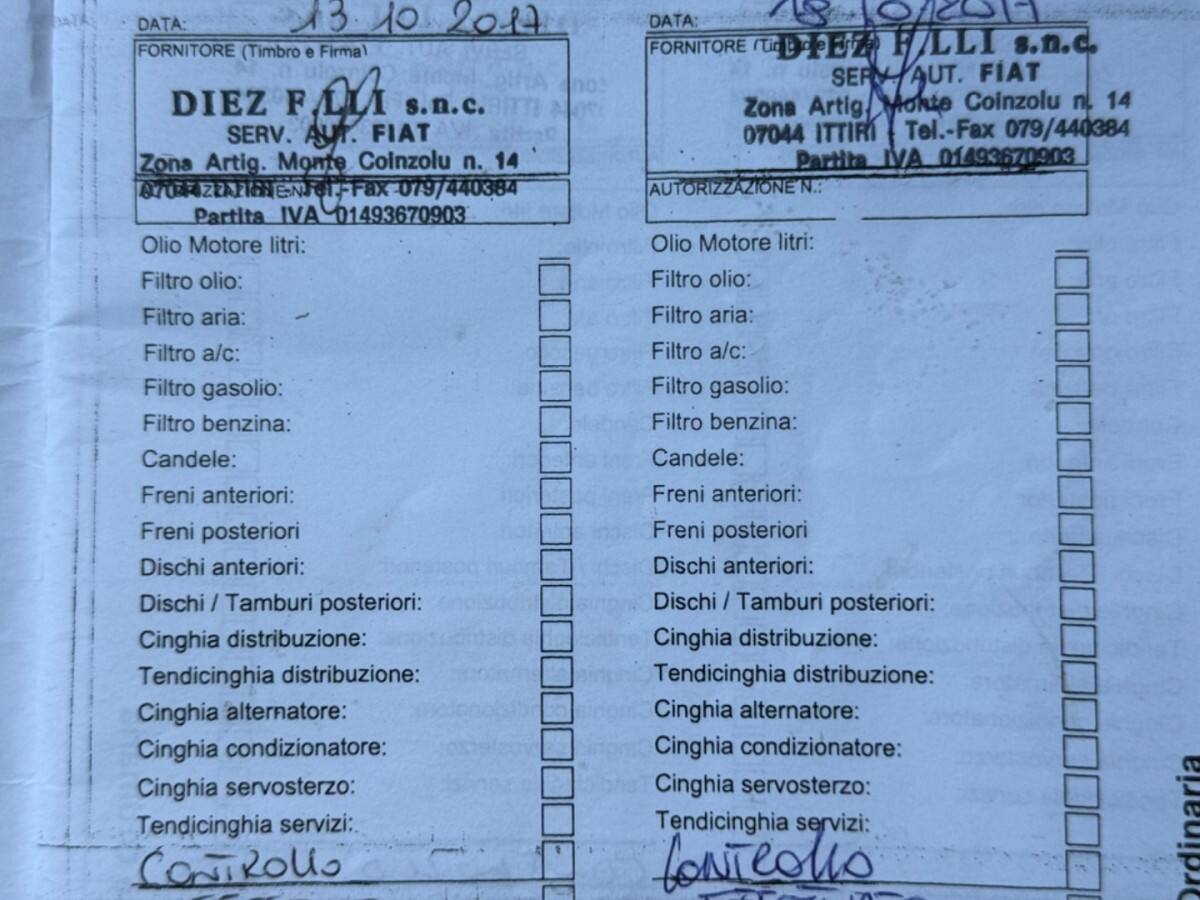 DATA: 13 10 2017
FORNITORE (Timbro e Firma)
DIEZ F.LLI s.n.c.
SERV. AUT. FIAT
Zona Artig. Monte Coinzolu n. 14
07044 ITTIRI - Tel.-Fax 079/440384
Partita IVA 01493670903
Olio Motore litri:
Filtro olio:
Filtro aria:
Filtro a/c:
Filtro gasolio:
Filtro benzina:
Candele:
Freni anteriori:
Freni posteriori
Dischi anteriori:
Dischi / Tamburi posteriori:
Cinghia distribuzione:
Tendicinghia distribuzione:
Cinghia alternatore:
Cinghia condizionatore:
Cinghia servosterzo:
Tendicinghia servizi:
CONTROLLO
DATA:
FORNITORE (Timbro e Firma)
DIEZ F.LLI s.n.c.
SERV. AUT. FIAT
Zona Artig. Monte Coinzolu n. 14
07044 ITTIRI - Tel.-Fax 079/440384
Partita IVA 01493670903
AUTORIZZAZIONE N.:
Olio Motore litri:
Filtro olio:
Filtro aria:
Filtro a/c:
Filtro gasolio:
Filtro benzina:
Candele:
Freni anteriori:
Freni posteriori
Dischi anteriori:
Dischi / Tamburi posteriori:
Cinghia distribuzione:
Tendicinghia distribuzione:
Cinghia alternatore:
Cinghia condizionatore:
Cinghia servosterzo:
Tendicinghia servizi:
CONTROLLO
Ordinaria